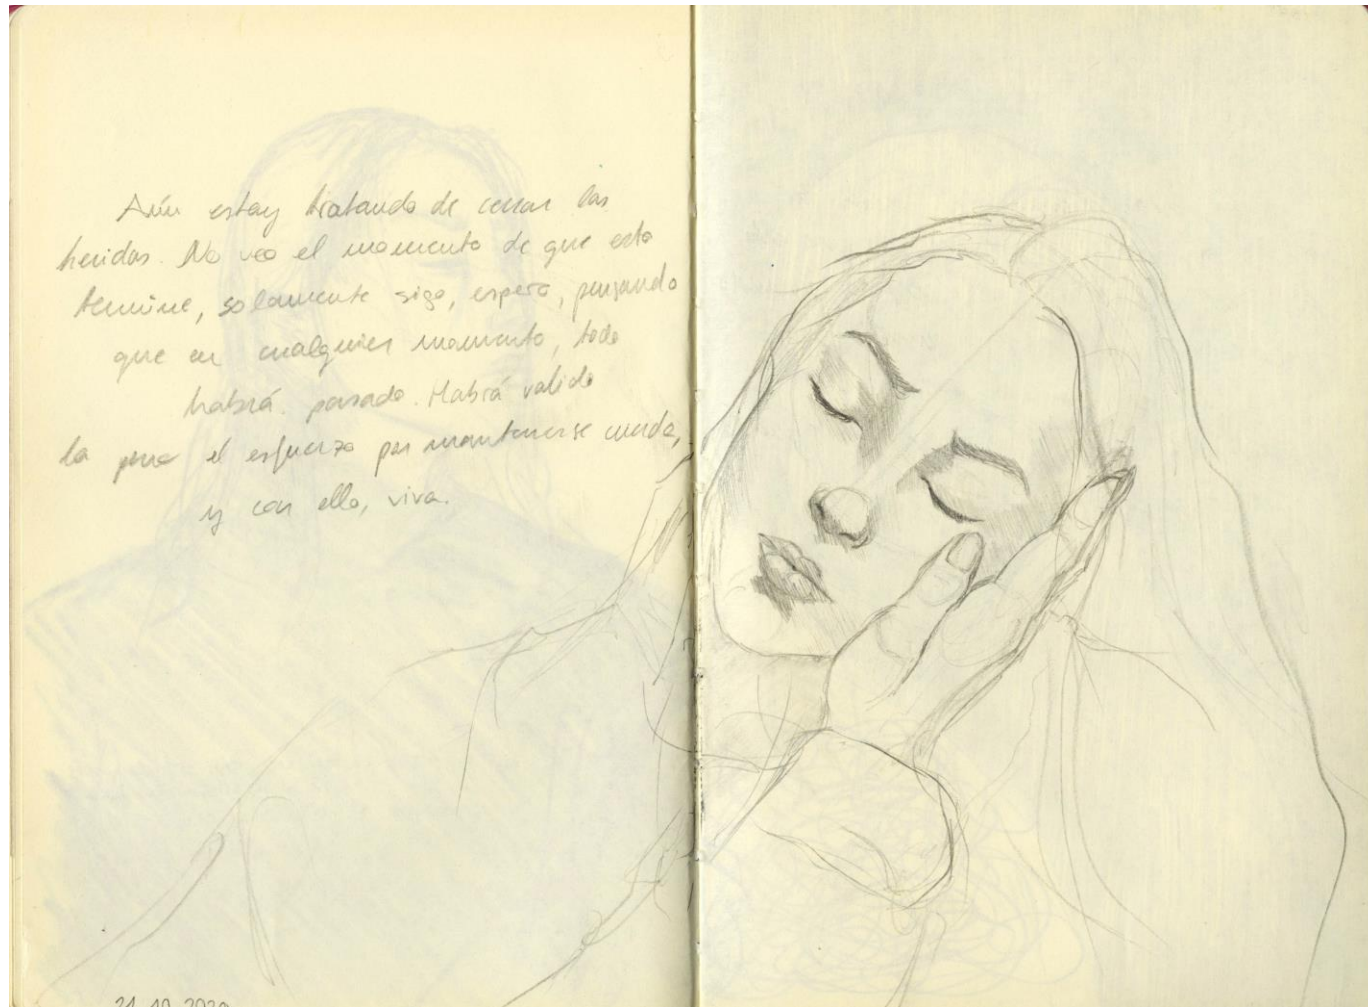 Aún estoy tratando de cerrar las
heridas. No veo el momento de que esto
termine, solamente sigo, espero, pensando
que en cualquier momento, todo
habrá pasado. Habrá valido
la pena el esfuerzo por mantenerse cuerda,
y con ello, viva.